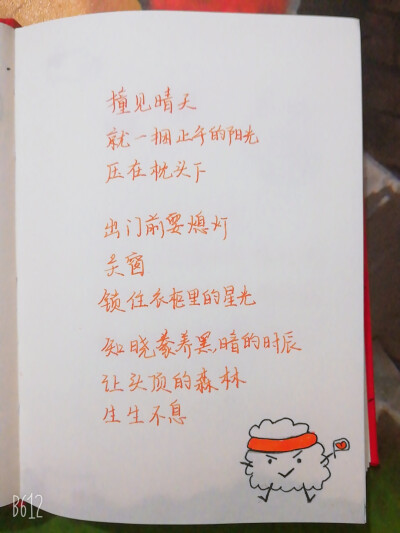 撞见晴天
就一捆上午的阳光
压在枕头下
出门前要熄灯
关窗
锁住衣柜里的星光
知晓豢养黑暗的时辰
让头顶的森林
生生不息
B612